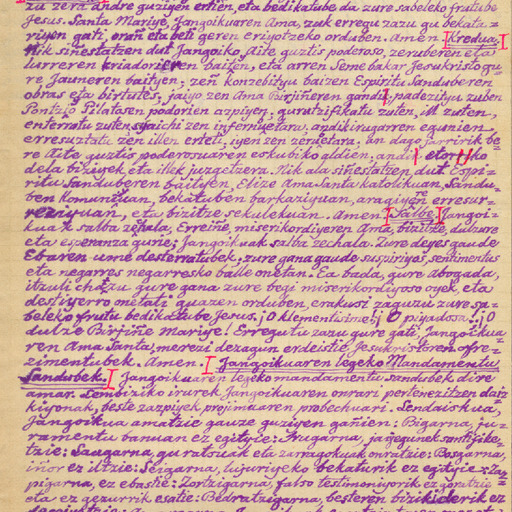 zu zera Andre guziyen ertien, eta bedikatube da zure sabeleko frutube
Jesus. Santa Mariye, Jangoikuaren Ama, zuk erregu zazu gu bekata-
riyen gati, orañ eta beti geren eriyotzeko orduben. Amen. Kredua.
Nik siñestatzen dut Jangoiko, Aite guztis poderoso, zeruberen eta
lurreren kriadorieren baiten, eta arren Seme bakar Jesukristo gu-
re Jauneren baitjen; zeñ konzebityu baizen Espiritu Sanduberen
obras eta birtutes, jaiyo zen Ama Birjiñeren gandi, padezityu zuben
Pontzio Pilatosen podorien azpiyen, gurutzifikatu zuten, il zuten,
enterratu zuten, yaichi zen infernuetara, andik irugarren egunien
erresuztatu zen illen erteti, iyen zen zeruetara, an dago jarririk be-
re Aite guztis poderosuaren eskubiko aldien, andi etorriko
dela biziyek eta illek juzgetzera. Nik ala siñestatzen dut Espi-
ritu Sanduberen baitjen, Elize Ama Santa katolikuan, Sandu-
ben komunziuan, bekatuben barkaziyuan, aragiyeren erresur-
reziyuan, eta bizitze sekulekuan. Amen. Salbe. Jangoi-
kua k salba zezhala, Erreiñe, miserikordiyeren Ama, bizitze, dulzure
eta esperanza gurie; Jangoikuak salba zechala. Zure deyes gaude
Ebaren ume desterratubek, zure gana gaude suspiriyos, sentimentus
eta negarres negarresko balle onetan. Ea bada, gure abogada,
itzuli chazau gure gana zure begi miserikordiyoso oyek, eta
destiyerro onetati guazen orduben, erakusi zaguzu zure sa-
beleko frutu bedikatube Jesus. ¡O klementisime! ¡O piyadosa! ¡O
dulze Birjiñe Mariye! Erregutu zazu gure gati, Jangoikua-
ren Ama Santa, merezi dezagun erdeistie Jesukristoren ofre-
zimentubek. Amen. Jangoikuaren legeko Mandamentu
Sandubek. Jangoikuaren legeko mandamentu sandubek dire
amar. Lembiziko irurek Jangoikuaren onrari pertenezitzen dai-
kiyonak, beste zazpiyek projimuaren probechuari. Lendaiskua,
Jangoikua amatzie gauze guziyen gañien: Bigarna, ju-
ramentu banuan ez egityie: Irugarna, jaiyegunek santifike-
tzie: Laugarna, guratsuak eta zarragokuak onratzie: Bosgarna,
iñor ez iltzie: Seigarna, lujuriyeko bekaturik ez egityie: Zaz-
pigarna, ez ebastie: Zortzigarna, falso testimoniyorik ez goratzie
eta ez gezurrik esatie: Bedratzigarna, besteren bizikiderik ez